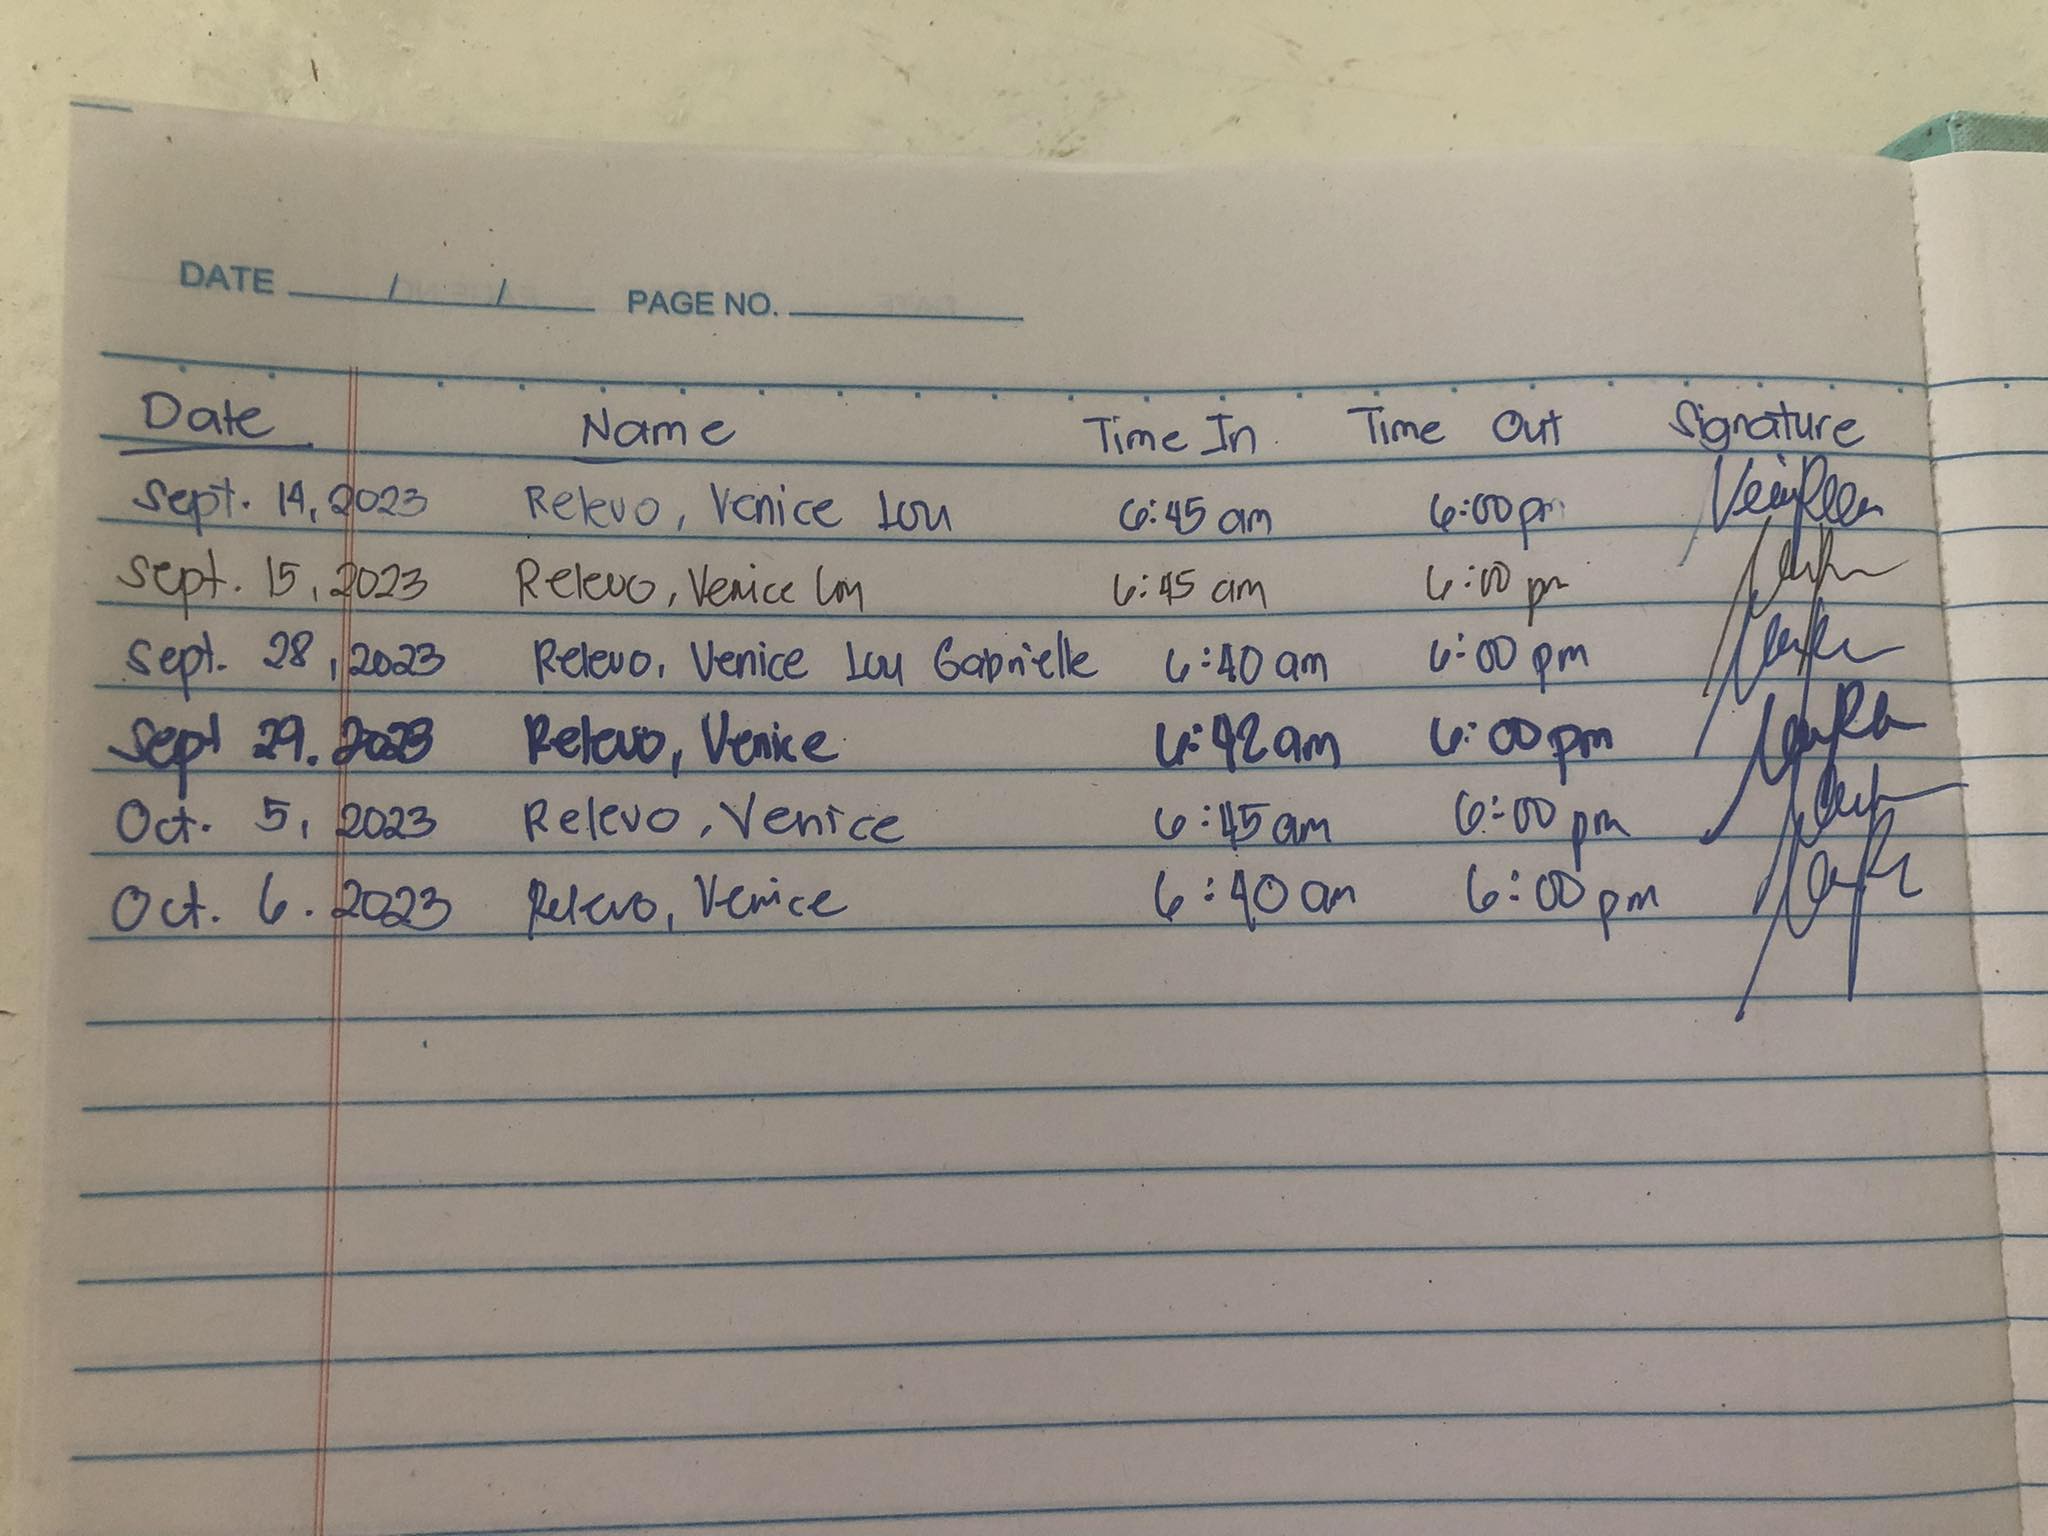 DATE ____/____/____ PAGE NO. ________
Date Name Time In Time Out Signature
Sept. 14, 2023 Relevo, Venice Lou 6:45 am 6:00 pm
Sept. 15, 2023 Relevo, Venice Lou 6:45 am 6:00 pm
Sept. 28, 2023 Relevo, Venice Lou Gabrielle 6:40 am 6:00 pm
Sept 29. 2023 Relevo, Venice 6:42 am 6:00 pm
Oct. 5, 2023 Relevo, Venice 6:45 am 6:00 pm
Oct. 6. 2023 Relevo, Venice 6:40 am 6:00 pm